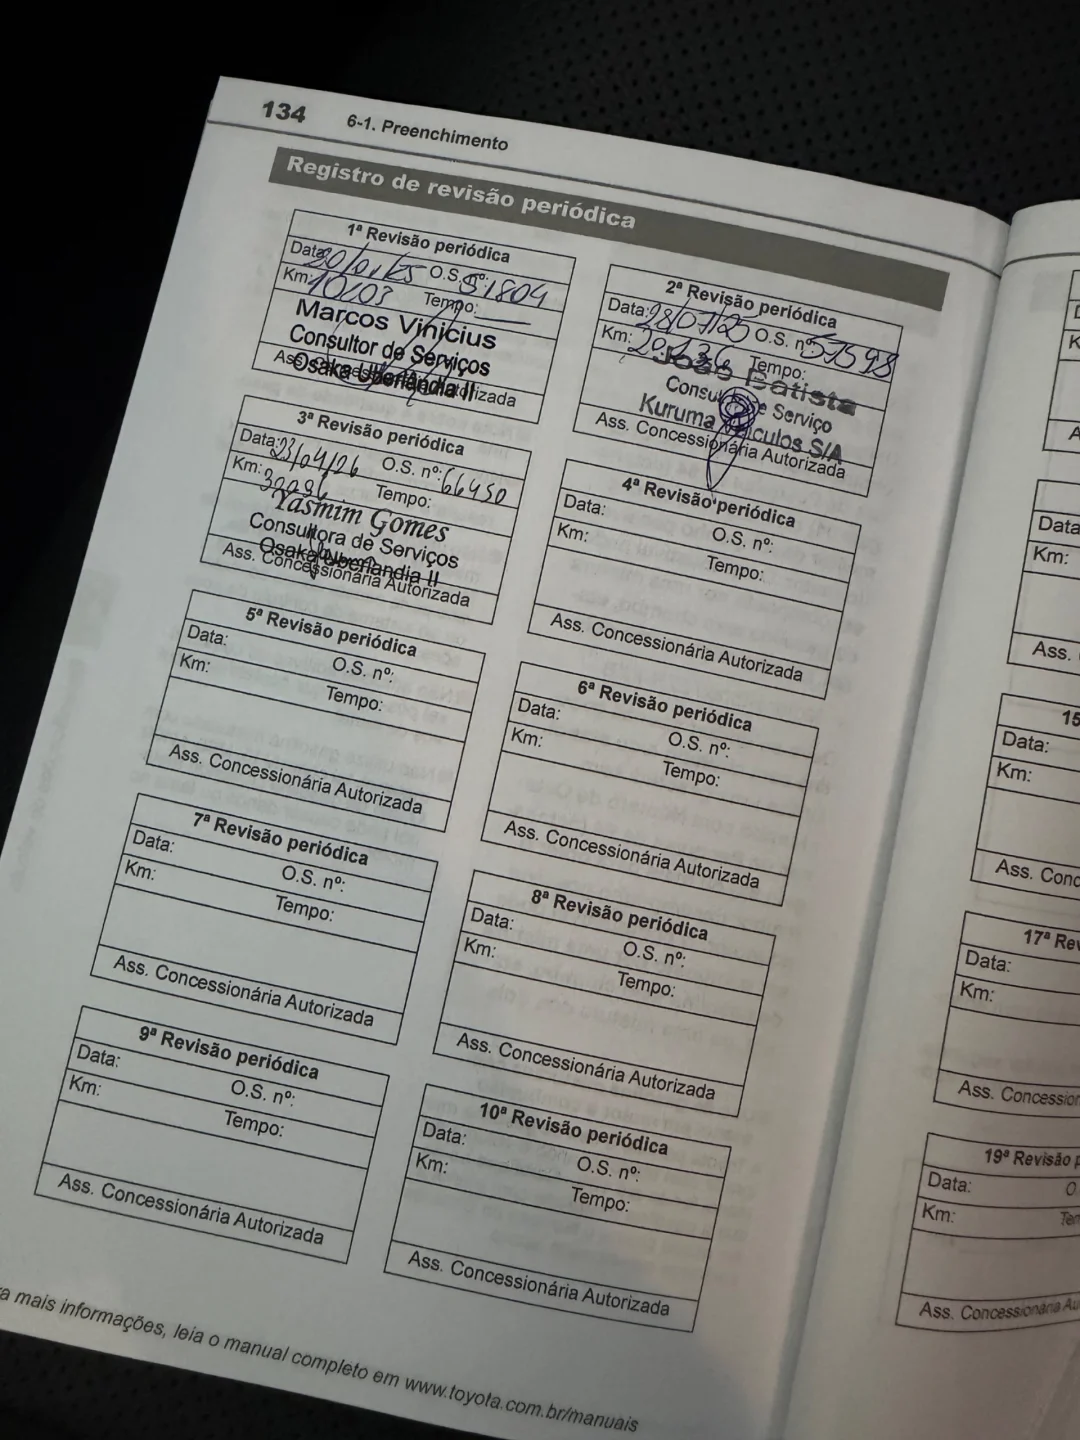 134 6-1. Preenchimento
Registro de revisão periódica
1ª Revisão periódica
Data: O.S. nº: 51804
Km: 10103 Tempo:
Marcos Vinicius
Consultor de Serviços
Osaka Uberlandia II
Ass. Concessionária Autorizada
2ª Revisão periódica
Data: 28/07/25 O.S. nº: 57598
Km: 20136 Tempo:
João Batista
Consultor de Serviço
Kuruma Veículos S/A
Ass. Concessionária Autorizada
3ª Revisão periódica
Data: 23/04/26 O.S. nº: 66450
Km: Tempo:
Yasmim Gomes
Consultora de Serviços
Osaka Uberlandia II
Ass. Concessionária Autorizada
4ª Revisão periódica
Data: O.S. nº:
Km: Tempo:
Ass. Concessionária Autorizada
5ª Revisão periódica
Data: O.S. nº:
Km: Tempo:
Ass. Concessionária Autorizada
6ª Revisão periódica
Data: O.S. nº:
Km: Tempo:
Ass. Concessionária Autorizada
7ª Revisão periódica
Data: O.S. nº:
Km: Tempo:
Ass. Concessionária Autorizada
8ª Revisão periódica
Data: O.S. nº:
Km: Tempo:
Ass. Concessionária Autorizada
9ª Revisão periódica
Data: O.S. nº:
Km: Tempo:
Ass. Concessionária Autorizada
10ª Revisão periódica
Data: O.S. nº:
Km: Tempo:
Ass. Concessionária Autorizada
a mais informações, leia o manual completo em www.toyota.com.br/manuais
Data
Km:
Ass.
15
Data:
Km:
Ass. Conc
17ª Rev
Data:
Km:
Ass. Concession
19ª Revisão p
Data: O
Km: Ter
Ass. Concessionária Au